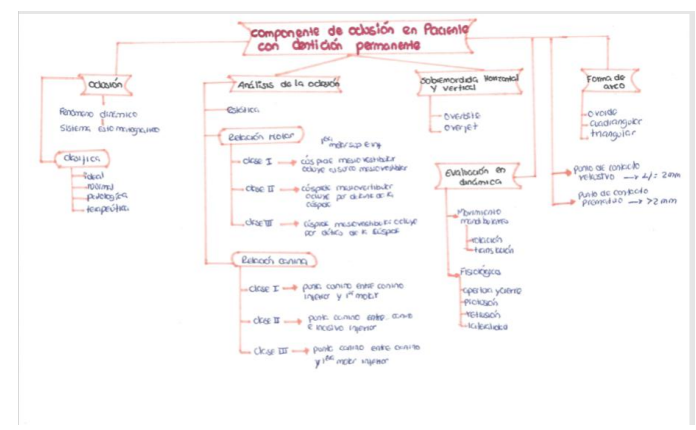 componente de oclusión en Paciente
con dentición permanente
oclusión
Fenómeno dinámico
Sistema
clasifica
ideal
normal
patológica
terapéutica
Análisis de la oclusión
Estática
Relación molar
clase I → cúspide mesiovestibular
ocluye surco mesiovestibular
clase II → cúspide mesiovestibular
ocluye por delante de la
cúspide
clase III → cúspide mesiovestibular ocluye
por detrás de la cúspide
Relación canina
clase I → punta canino entre canino
inferior y 1er molar
clase II → punta canino entre canino
e incisivo inferior
clase III → punta canino entre canino
y 1er molar inferior
Sobremordida Horizontal
y vertical
overbite
overjet
Evaluación en
dinámica
Movimiento
mandibulares
rotación
translación
Fisiológica
apertura y cierre
protusión
retusión
lateralidad
Forma de
arco
ovoide
cuadrangular
triangular
punto de contacto
→ 2mm
punto de contacto
→ >2mm